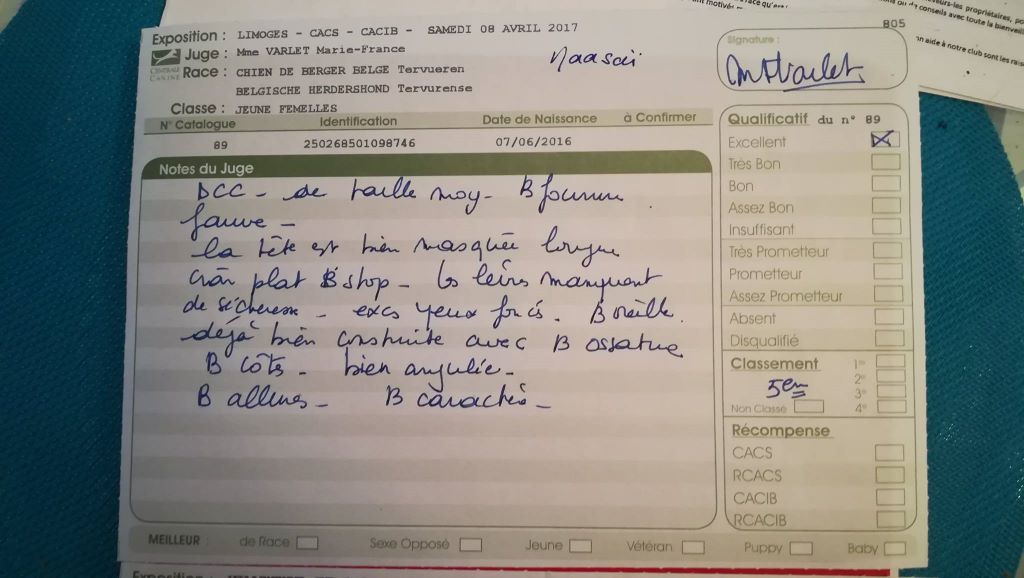 805
Exposition : LIMOGES - CACS - CACIB - SAMEDI 08 AVRIL 2017
Juge : Mme VARLET Marie-France
Naasaï
CENTRALE CANINE
Race : CHIEN DE BERGER BELGE Tervueren
BELGISCHE HERDERSHOND Tervurense
Classe : JEUNE FEMELLES
Signature :
MFVarlet
N° Catalogue Identification Date de Naissance à Confirmer
89 250268501098746 07/06/2016
Notes du Juge
DCC - de taille moy - B fourrure
fauve -
la tête est bien masquée longue
crân plat B stop - les lèvres manquent
de sécheresse - excs yeux foncés. B oreille.
déjà bien construite avec B ossature
B côtes - bien angulée -
B allures - B caractère -
Qualificatif du n° 89
Excellent
Très Bon
Bon
Assez Bon
Insuffisant
Très Prometteur
Prometteur
Assez Prometteur
Absent
Disqualifié
Classement
1er
2e
3e
4e
5em
Non Classé
Récompense
CACS
RCACS
CACIB
RCACIB
MEILLEUR : de Race Sexe Opposé Jeune Vétéran Puppy Baby
Exposition :